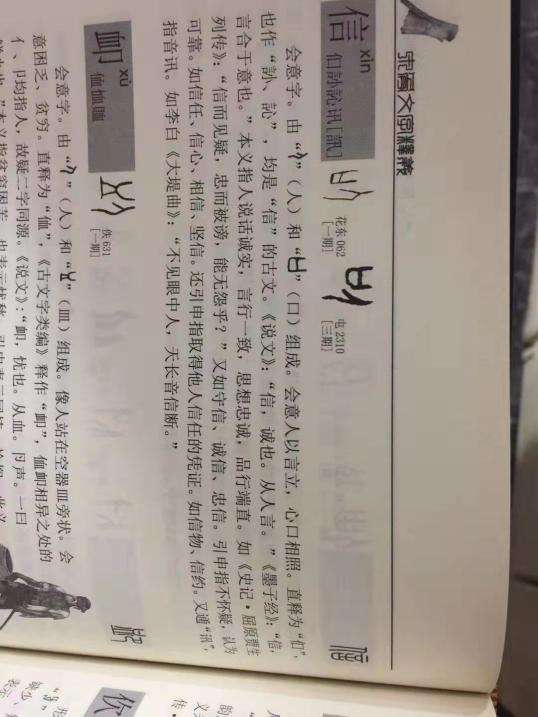 信 xìn
㐰訫䚱讯[訊]
花东 062
[一期]
屯 2310
[三期]
会意字。由“亻”（人）和“口”（口）组成。会意人以言立，心口相照。直释为“㐰”，
也作“訫、䚱”，均是“信”的古文。《说文》：“信，诚也。从人言。”《墨子经》：“信，
言合于意也。”本义指人说话诚实，言行一致，思想忠诚，品行端直。如《史记·屈原贾生
列传》：“信而见疑，忠而被谤，能无怨乎？”又如守信、诚信、忠信。引申指不怀疑，认为
可靠。如信任、信心、相信、坚信。还引申指取得他人信任的凭证。如信物、信约。又通“讯”，
指音讯。如李白《大堤曲》：“不见眼中人，天长音信断。”
卹 xù
佚 631
[一期]
会意字。由“亻”（人）和“皿”（皿）组成。像人站在空器皿旁状。会
意困乏、贫穷。直释为“㑉”，《古文字类编》释作“卹”，㑉卹相异之处的
亻、卩均指人，故疑二字同源。《说文》：“卹，忧也。从血。卩声。一曰